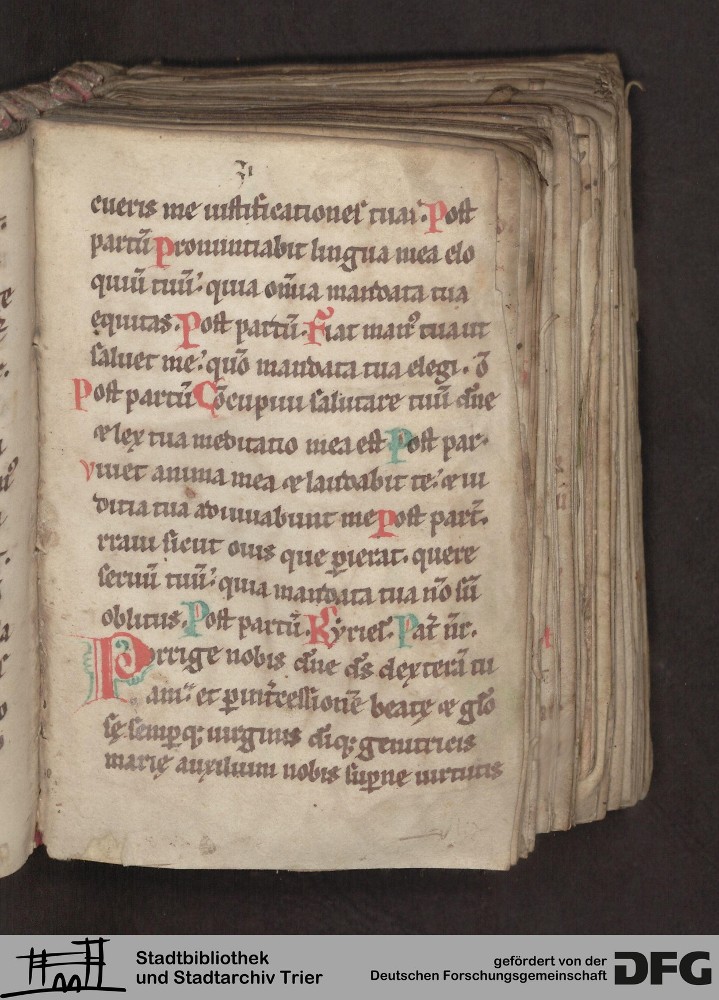 cueris me iustificationes tuas. Post
partū Pronuntiabit lingua mea elo
quiū tuū: quia om̄ia mandata tua
ęquitas. Post partū. Fiat man⁹ tua ut
saluet me: quō mandata tua elegi.
Post partū Cōcupiui salutare tuū dn̄e
& lex tua meditatio mea est Post par.
viuet anima mea & laudabit te: & iu
ditia tua adiuuabunt me Post part̄.
rraui sicut ouis que ꝑierat. quere
seruū tuū: quia mandata tua nō sū
oblitus. Post partū. Kyriel. Pat̄ nr̄.
Porrige nobis dn̄e ds̄ dexterā tu
am: et ꝑ int̄cessionē beatę & glō
sę semꝑq; uirginis diq; genitricis
marię auxilium nobis suꝑne uirtutis
Stadtbibliothek
und Stadtarchiv Trier
gefördert von der
Deutschen Forschungsgemeinschaft
DFG